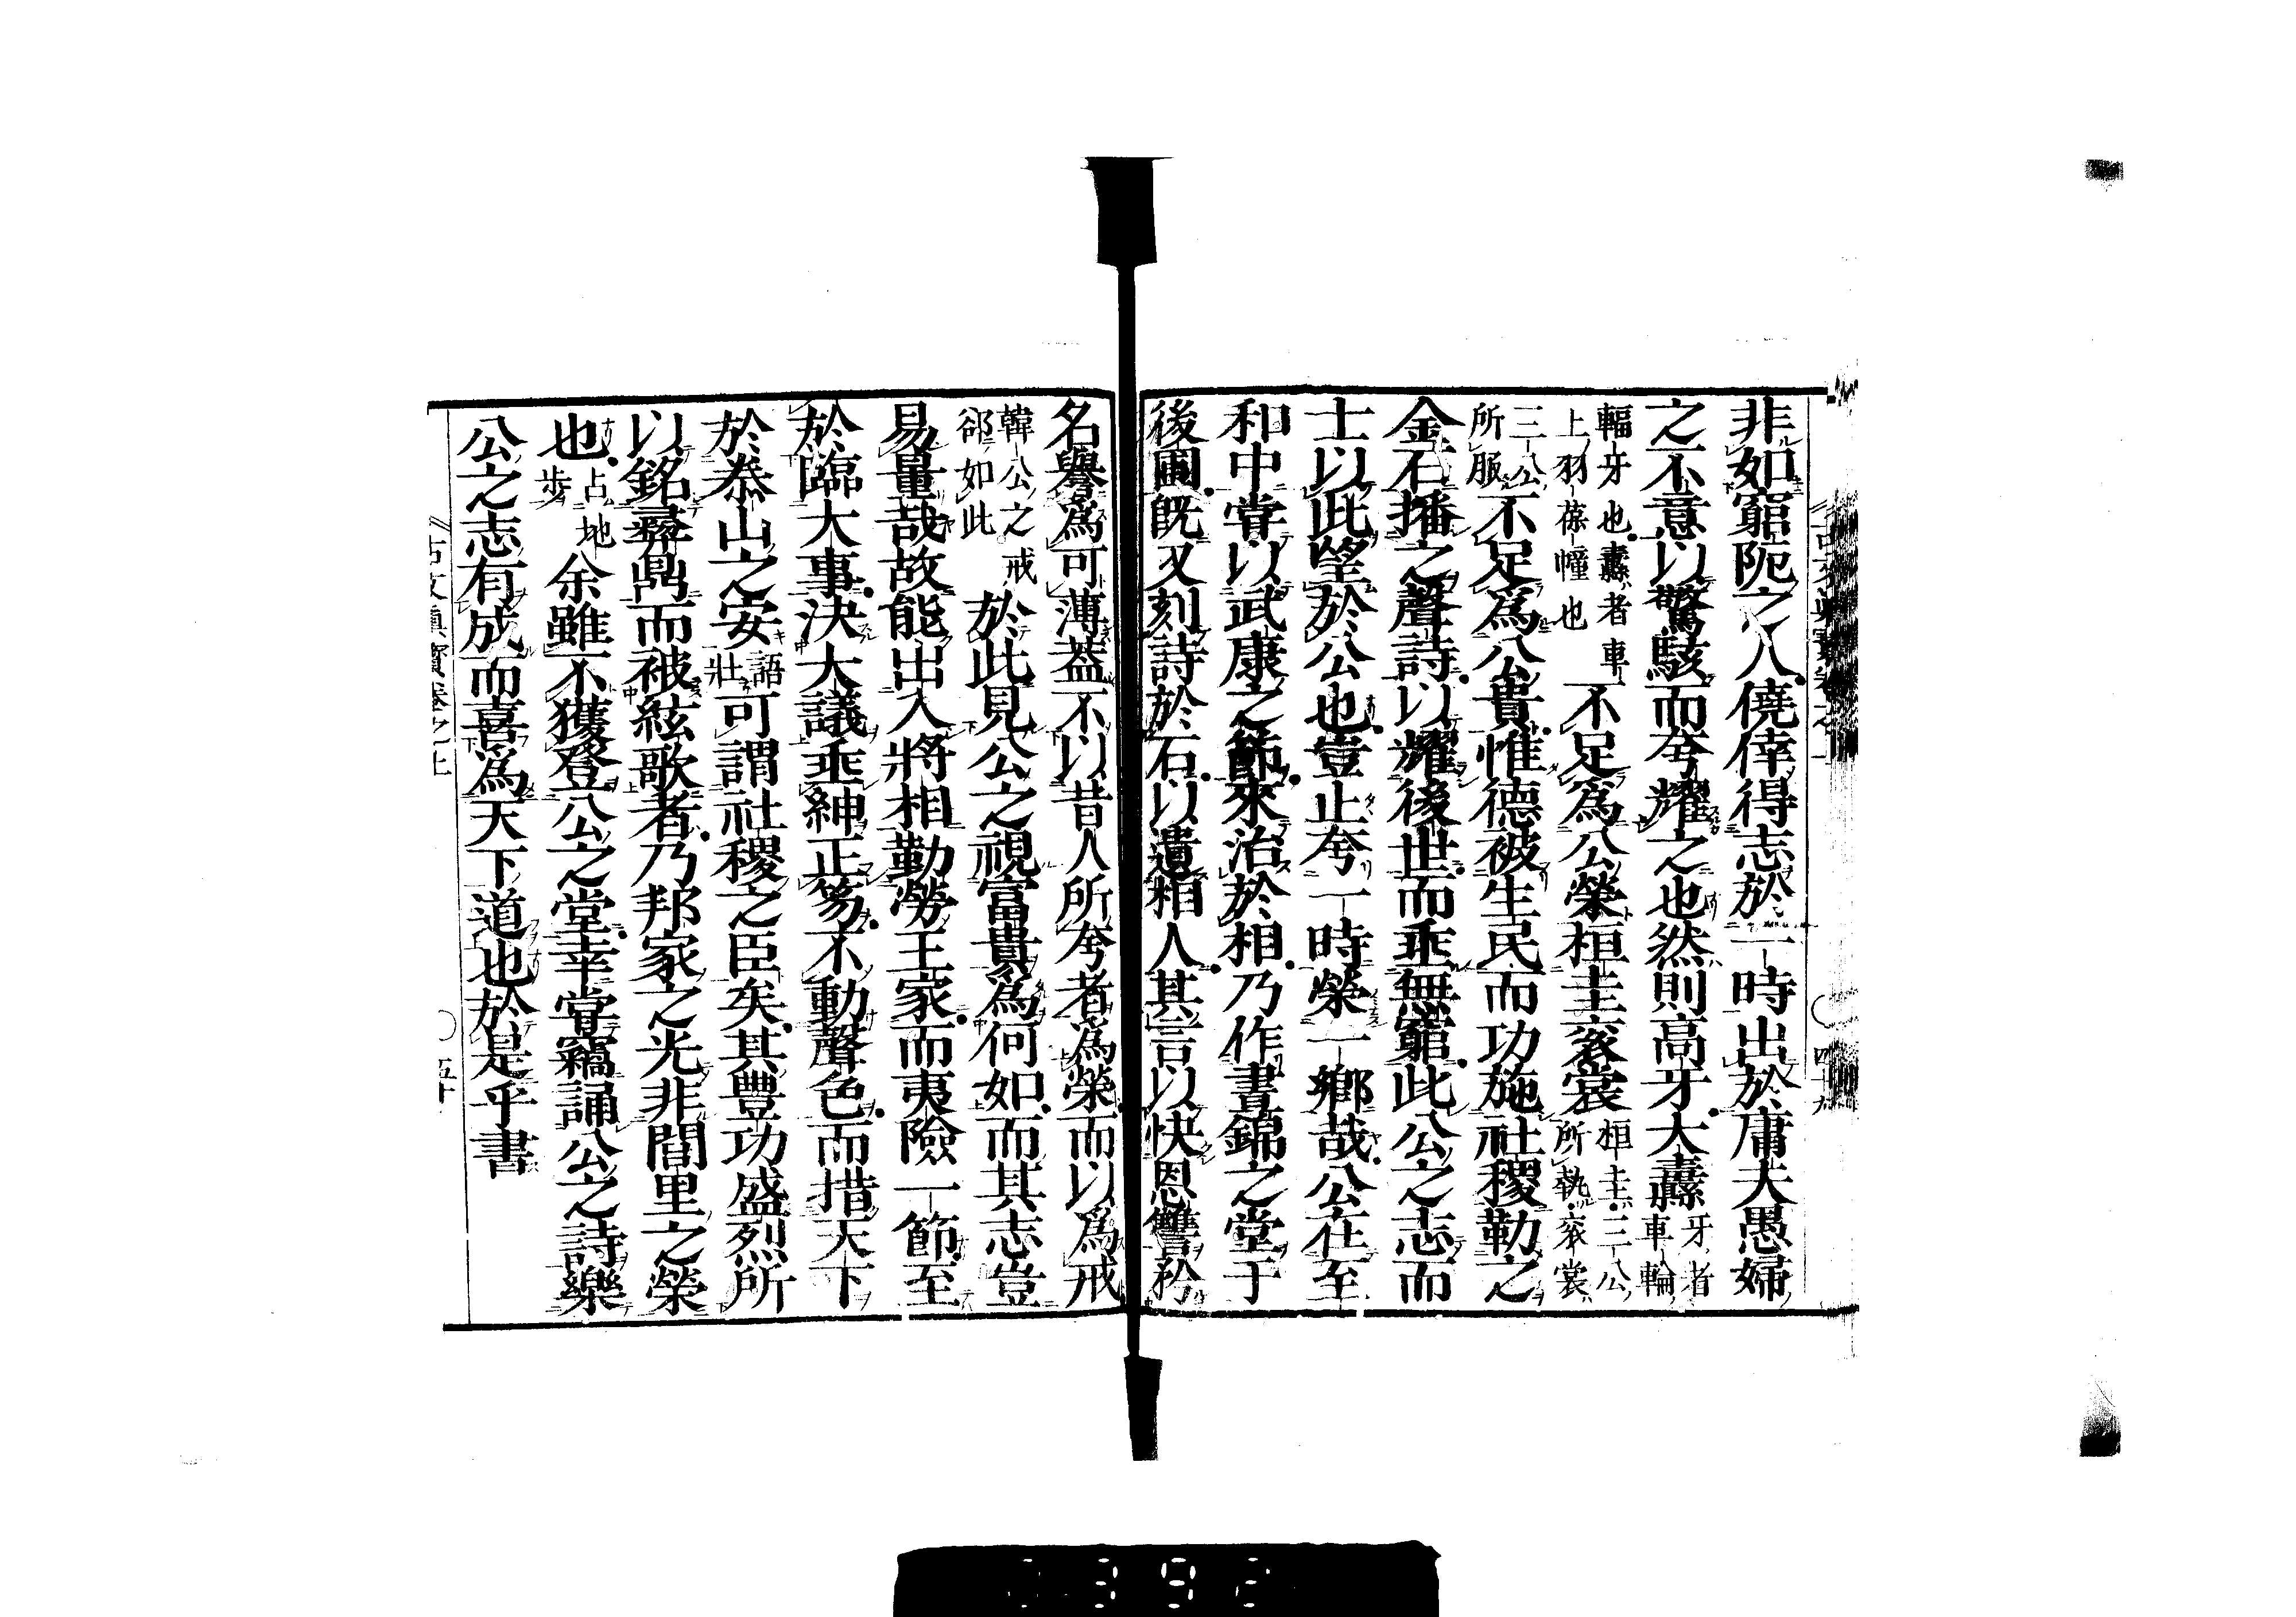 非如窮阨之人僥倖得志於一時出於庸夫愚婦
之不意以驚駭而夸耀之也然則高牙大纛牙者車輪
輻牙也纛者車上羽葆幢也不足爲公榮桓圭袞裳桓圭三公所執袞裳
三公所服不足爲公貴惟德被生民而功施社稷勒之
金石播之聲詩以耀後世而垂無窮此公之志而
士以此望於公也豈止夸一時榮一鄉哉公在至
和中嘗以武康之節來治於相乃作晝錦之堂于
後圃既又刻詩於石以遺相人其言以快恩讐矜
名譽爲可薄蓋不以昔人所夸者爲榮而以爲戒
韓公之戒郤如此於此見公之視富貴爲何如而其志豈
易量哉故能出入將相勤勞王家而夷險一節至
於臨大事決大議垂紳正笏不動聲色而措天下
於泰山之安語壯可謂社稷之臣矣其豐功盛烈所
以銘彝鼎而被絃歌者乃邦家之光非閭里之榮
也占地步余雖不獲登公之堂幸嘗竊誦公之詩樂
公之志有成而喜爲天下道也於是乎書
古文眞寶卷之上
五十